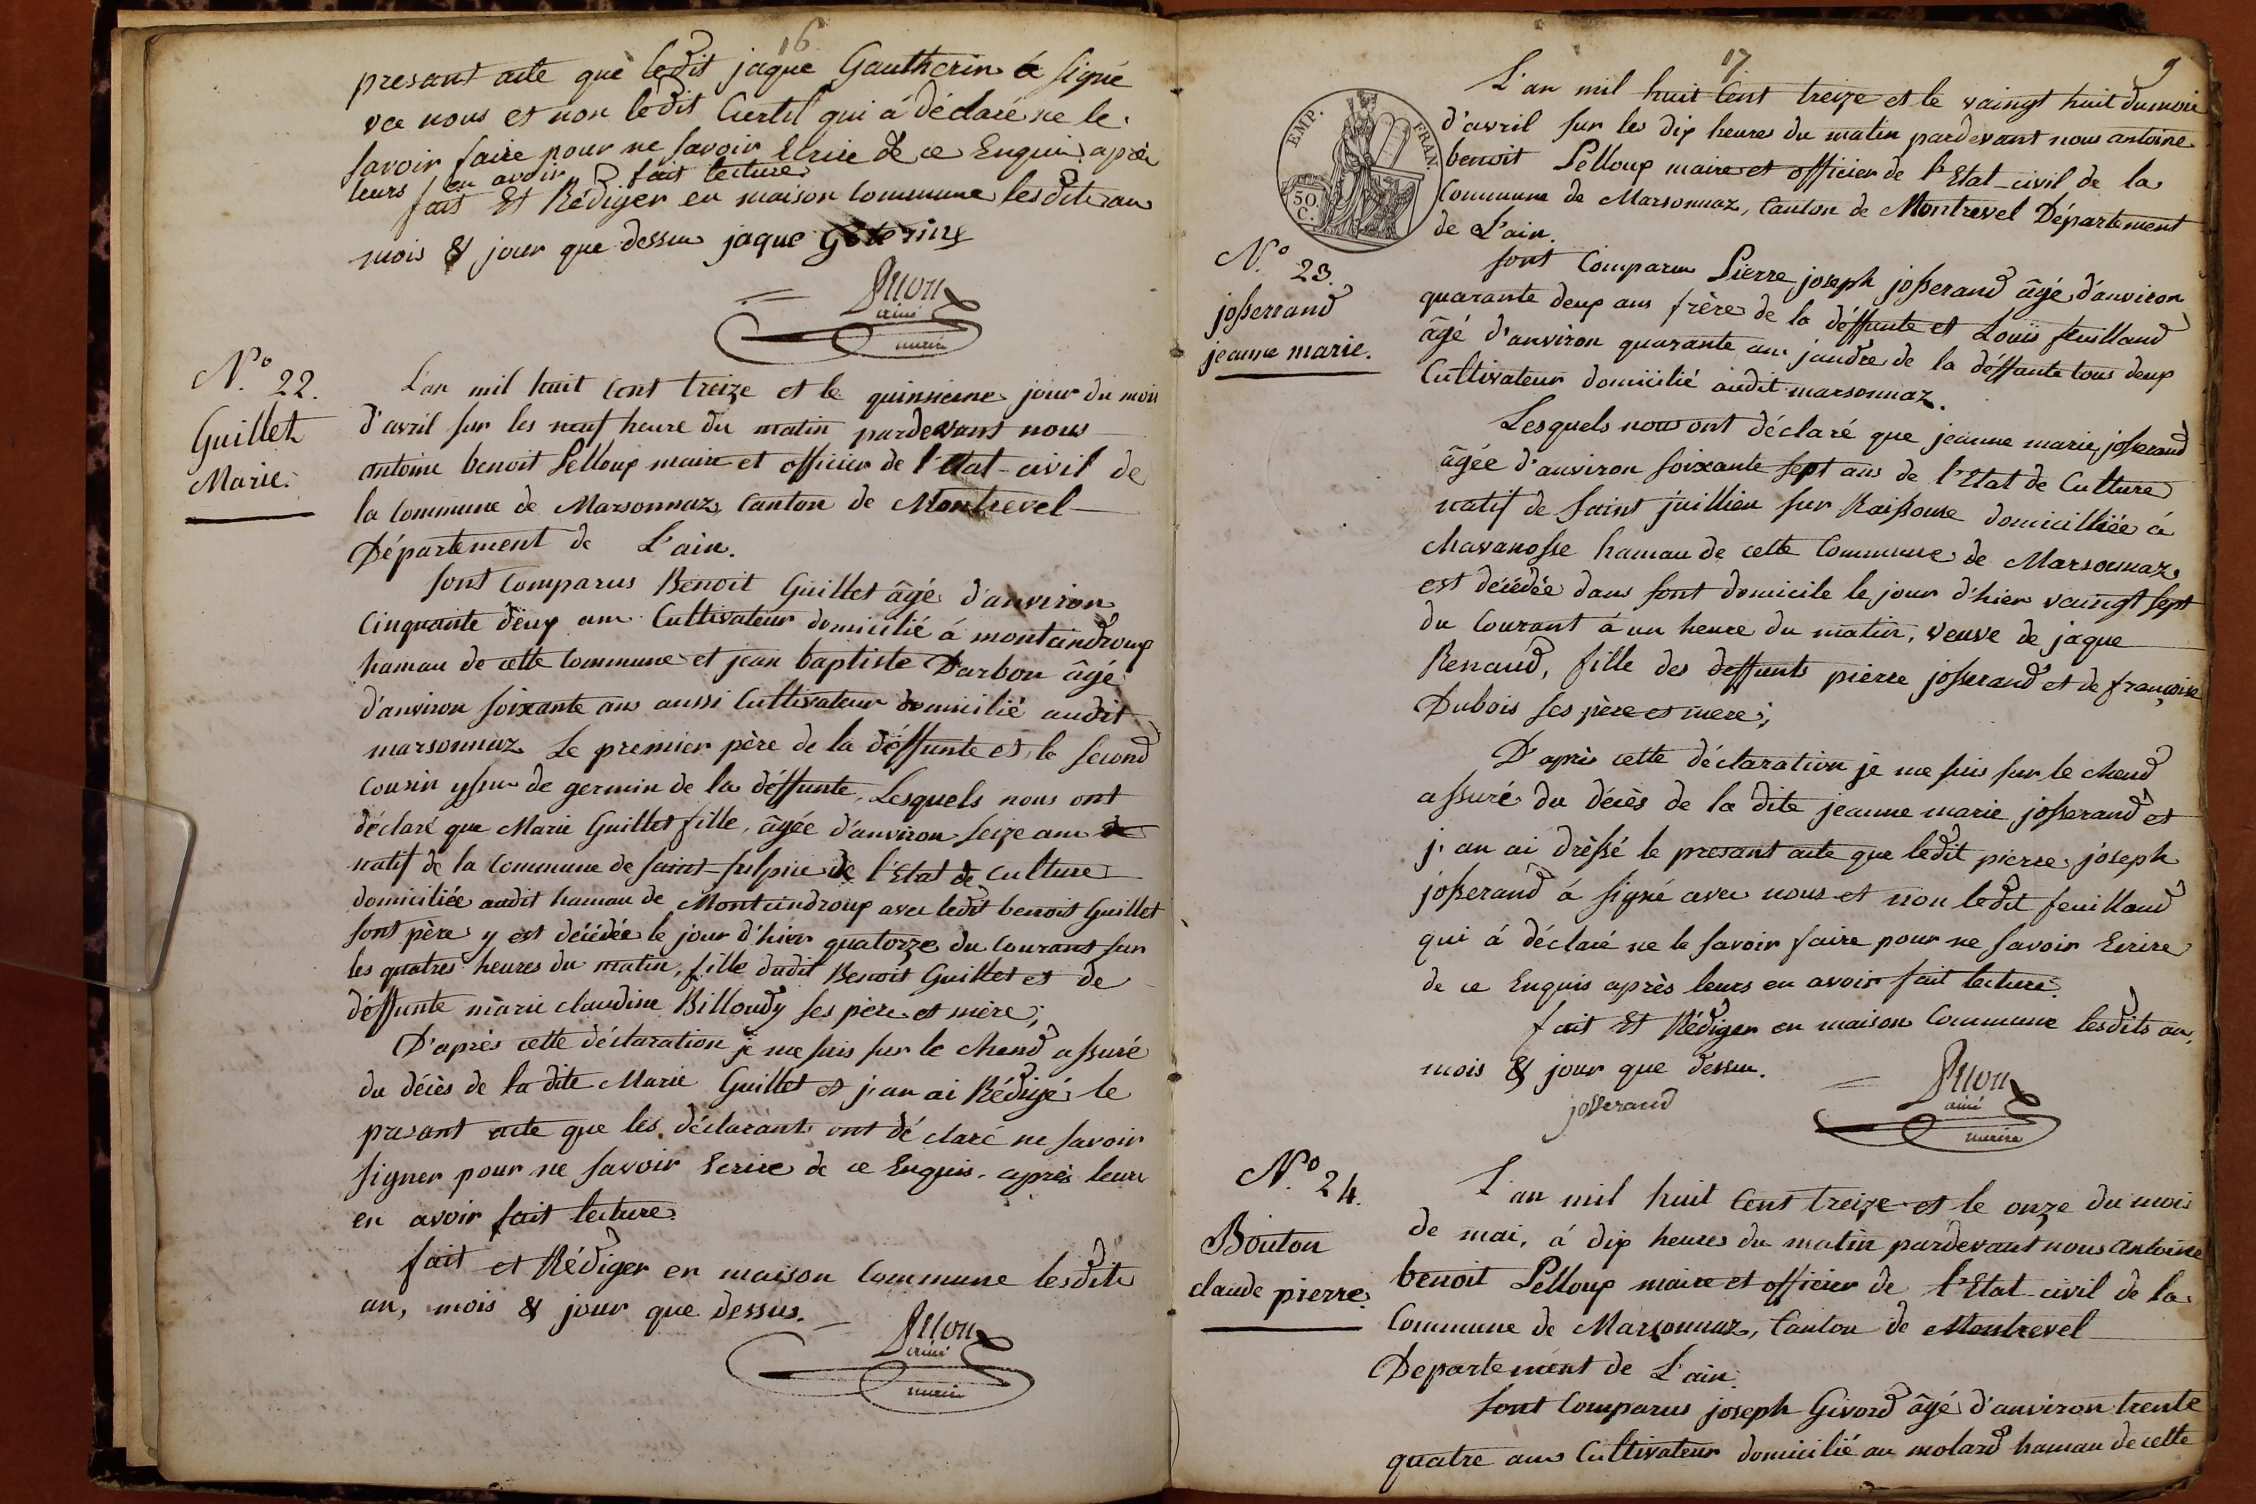 16
presant acte que ledit jaque Gautherin a signé
vec nous et non ledit Curtil qui á déclaré ne le
savoir faire pour ne savoir Ecrire de ce Enquis après
leurs en avoir fait lecture
fait Et Rédiger en maison Commune lesdits an
mois & jour que dessus jaque Goterin
aîné
maire
N.º 22.
Guillet
Marie.
L'an mil huit Cent treize et le quinsieme jour du mois
d'avril sur les neuf heure du matin pardevant nous
antoine benoit Pelloup maire et officier de l'Etat-civil de
la Commune de Marsonnaz, Canton de Montrevel
Département de L'ain.
sont Comparus Benoit Guillet âgé d'anviron
Cinquante deux ans Cultivateur domicilié á montandroup
hamau de cette Commune et jean baptiste Darbon âgé
d'anviron soixante ans aussi Cultivateur domicilié audit
marsonnaz Le premier père de la déffunte et le second
Cousin yssu de germin de la déffunte, Lesquels nous ont
déclaré que Marie Guillet fille, âgée d'anviron seize ans
natif de la Commune de saint-sulpice de l'Etat de Culture
domiciliée audit hamau de Montandroup avec ledit benoit Guillet
sont père y est décédée le jour d'hier quatorze du Courant sur
les quatres heures du matin, fille dudit Benoit Guillet et de
déffunte marie claudine Billoudy ses père et mère;
D'après cette déclaration je me suis sur le chend assuré
du décès de la dite Marie Guillet et j'an ai Rédigé le
presant acte que les déclarants ont dé claré ne savoir
signer pour ne savoir Ecrire de ce Enquis. après leurs
en avoir fait lecture.
fait et Rédiger en maison Commune lesdits
an, mois & jour que dessus.
aîné
maire
17
9
EMP. FRAN.
50
C.
L'an mil huit Cent treize et le vaingt huit du mois
d'avril sur les dix heures du matin pardevant nous antoine
benoit Pelloup maire et officier de l'Etat-civil de la
Commune de Marsonnaz, Canton de Montrevel Département
de L'ain.
N.º 23.
josserand
jeanne marie.
sont Comparus Pierre joseph josserand âgé d'anviron
quarante deux ans frère de la déffunte et Louis feuilland
âgé d'anviron quarante ans jandre de la déffunte tous deux
Cultivateur domicilié audit marsonnaz.
Lesquels nous ont déclaré que jeanne marie josserand
âgée d'anviron soixante sept ans de l'Etat de Culture
natif de saint juillien sur Raissouse domicilliée á
chavanosse hamau de cette Commune de Marsonnaz,
est décédée dans sont domicile le jour d'hier vaingt sept
du Courant á un heure du matin, veuve de jaque
Renaud, fille des deffunts pierre josserand et de françoise
Dubois ses père et mere;
D'après cette déclaration je me suis sur le chend
assuré du décès de la dite jeanne marie josserand et
j'an ai dréssé le presant acte que ledit pierre joseph
josserand á signé avec nous et non ledit feuilland
qui á déclaré ne le savoir faire pour ne savoir Ecrire
de ce Enquis après leurs en avoir fait lecture.
fait Et Rédiger en maison Commune lesdits an,
mois & jour que dessus.
josserand
aîné
maire
N.º 24.
Bouton
claude pierre.
L'an mil huit Cent treize et le onze du mois
de mai, á dix heures du matin pardevant nous antoine
benoit Pelloup maire et officier de l'Etat-civil de la
Commune de Marsonnaz, Canton de Montrevel
Departement de L'ain.
sont Comparus joseph Givord âgé d'anviron trente
quatre ans Cultivateur domicilié au molard hamau de cette